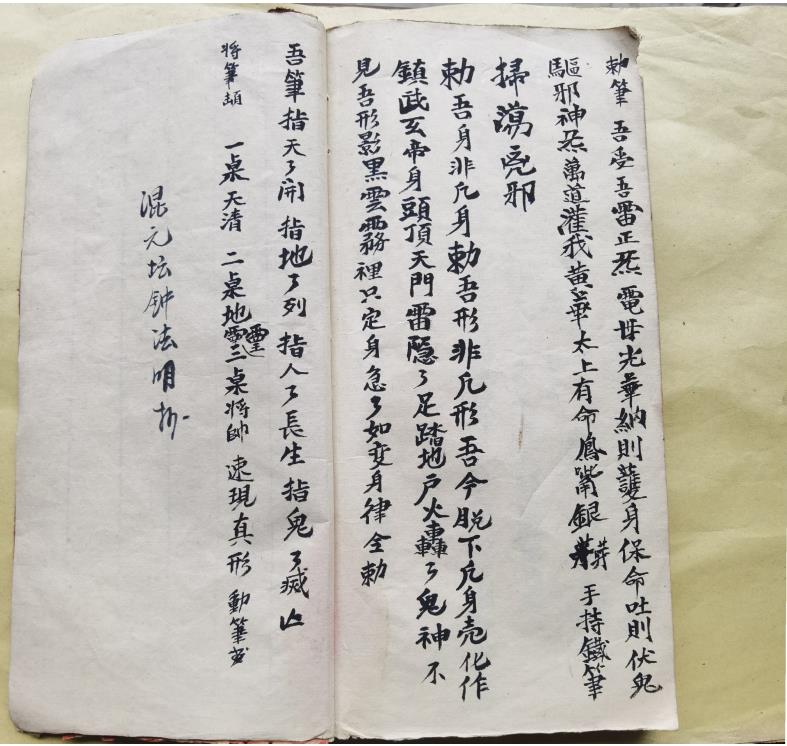 勅筆 吾受吾雷正炁 電母光華納則護身保命吐則伏鬼
驅邪神炁萬道灌我黄華太上有命鳥嘴銀 手持鐵筆
掃蕩妖邪
勅吾身非凡身勅吾形非凡形吾今脱下凡身壳化作
鎮武玄帝身頭頂天門雷隱了足踏地户火轟了鬼神不
見吾形影黑雲霧裡只定身急了如变身律令勅
吾筆指天了開 指地了列 指人了長生 指鬼了滅亡
将筆頭 一桌天清 二桌地靈三桌将帥 速現真形 動筆出
混元坛钟法明抄